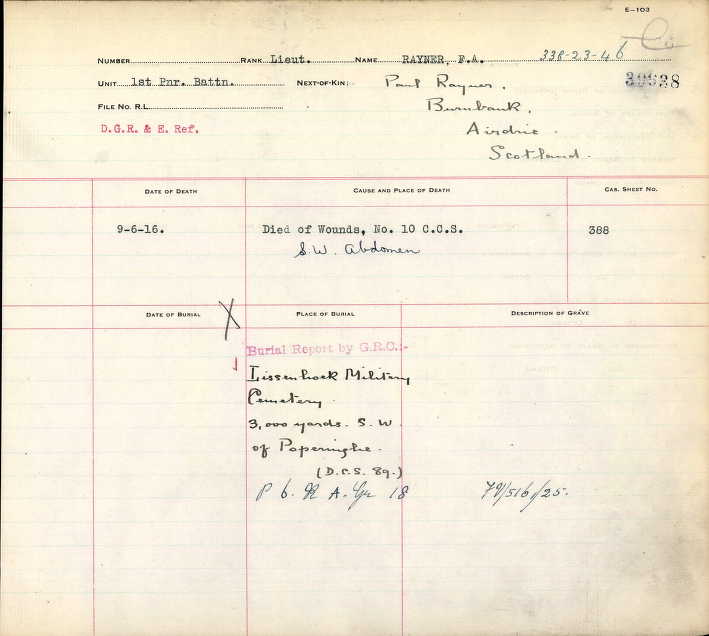 E-103
Co
NUMBER RANK Lieut. NAME RAYNER, F.A. 338-23-46
UNIT 1st Pnr. Battn. NEXT-OF-KIN: Paul Rayner.
Burnbank,
FILE NO. R.L.
D.G.R. & E. Ref.
Airdrie.
Scotland.
DATE OF DEATH CAUSE AND PLACE OF DEATH CAS. SHEET NO.
9-6-16. Died of Wounds, No. 10 C.C.S. 388
S.W. Abdomen
DATE OF BURIAL X PLACE OF BURIAL DESCRIPTION OF GRAVE
Burial Report by G.R.C.:-
Lissenhoek Military
Cemetery.
3,000 yards. S.W
of Poperinghe.
(D.C.S. 89.)
P 6. R A. Gr 18